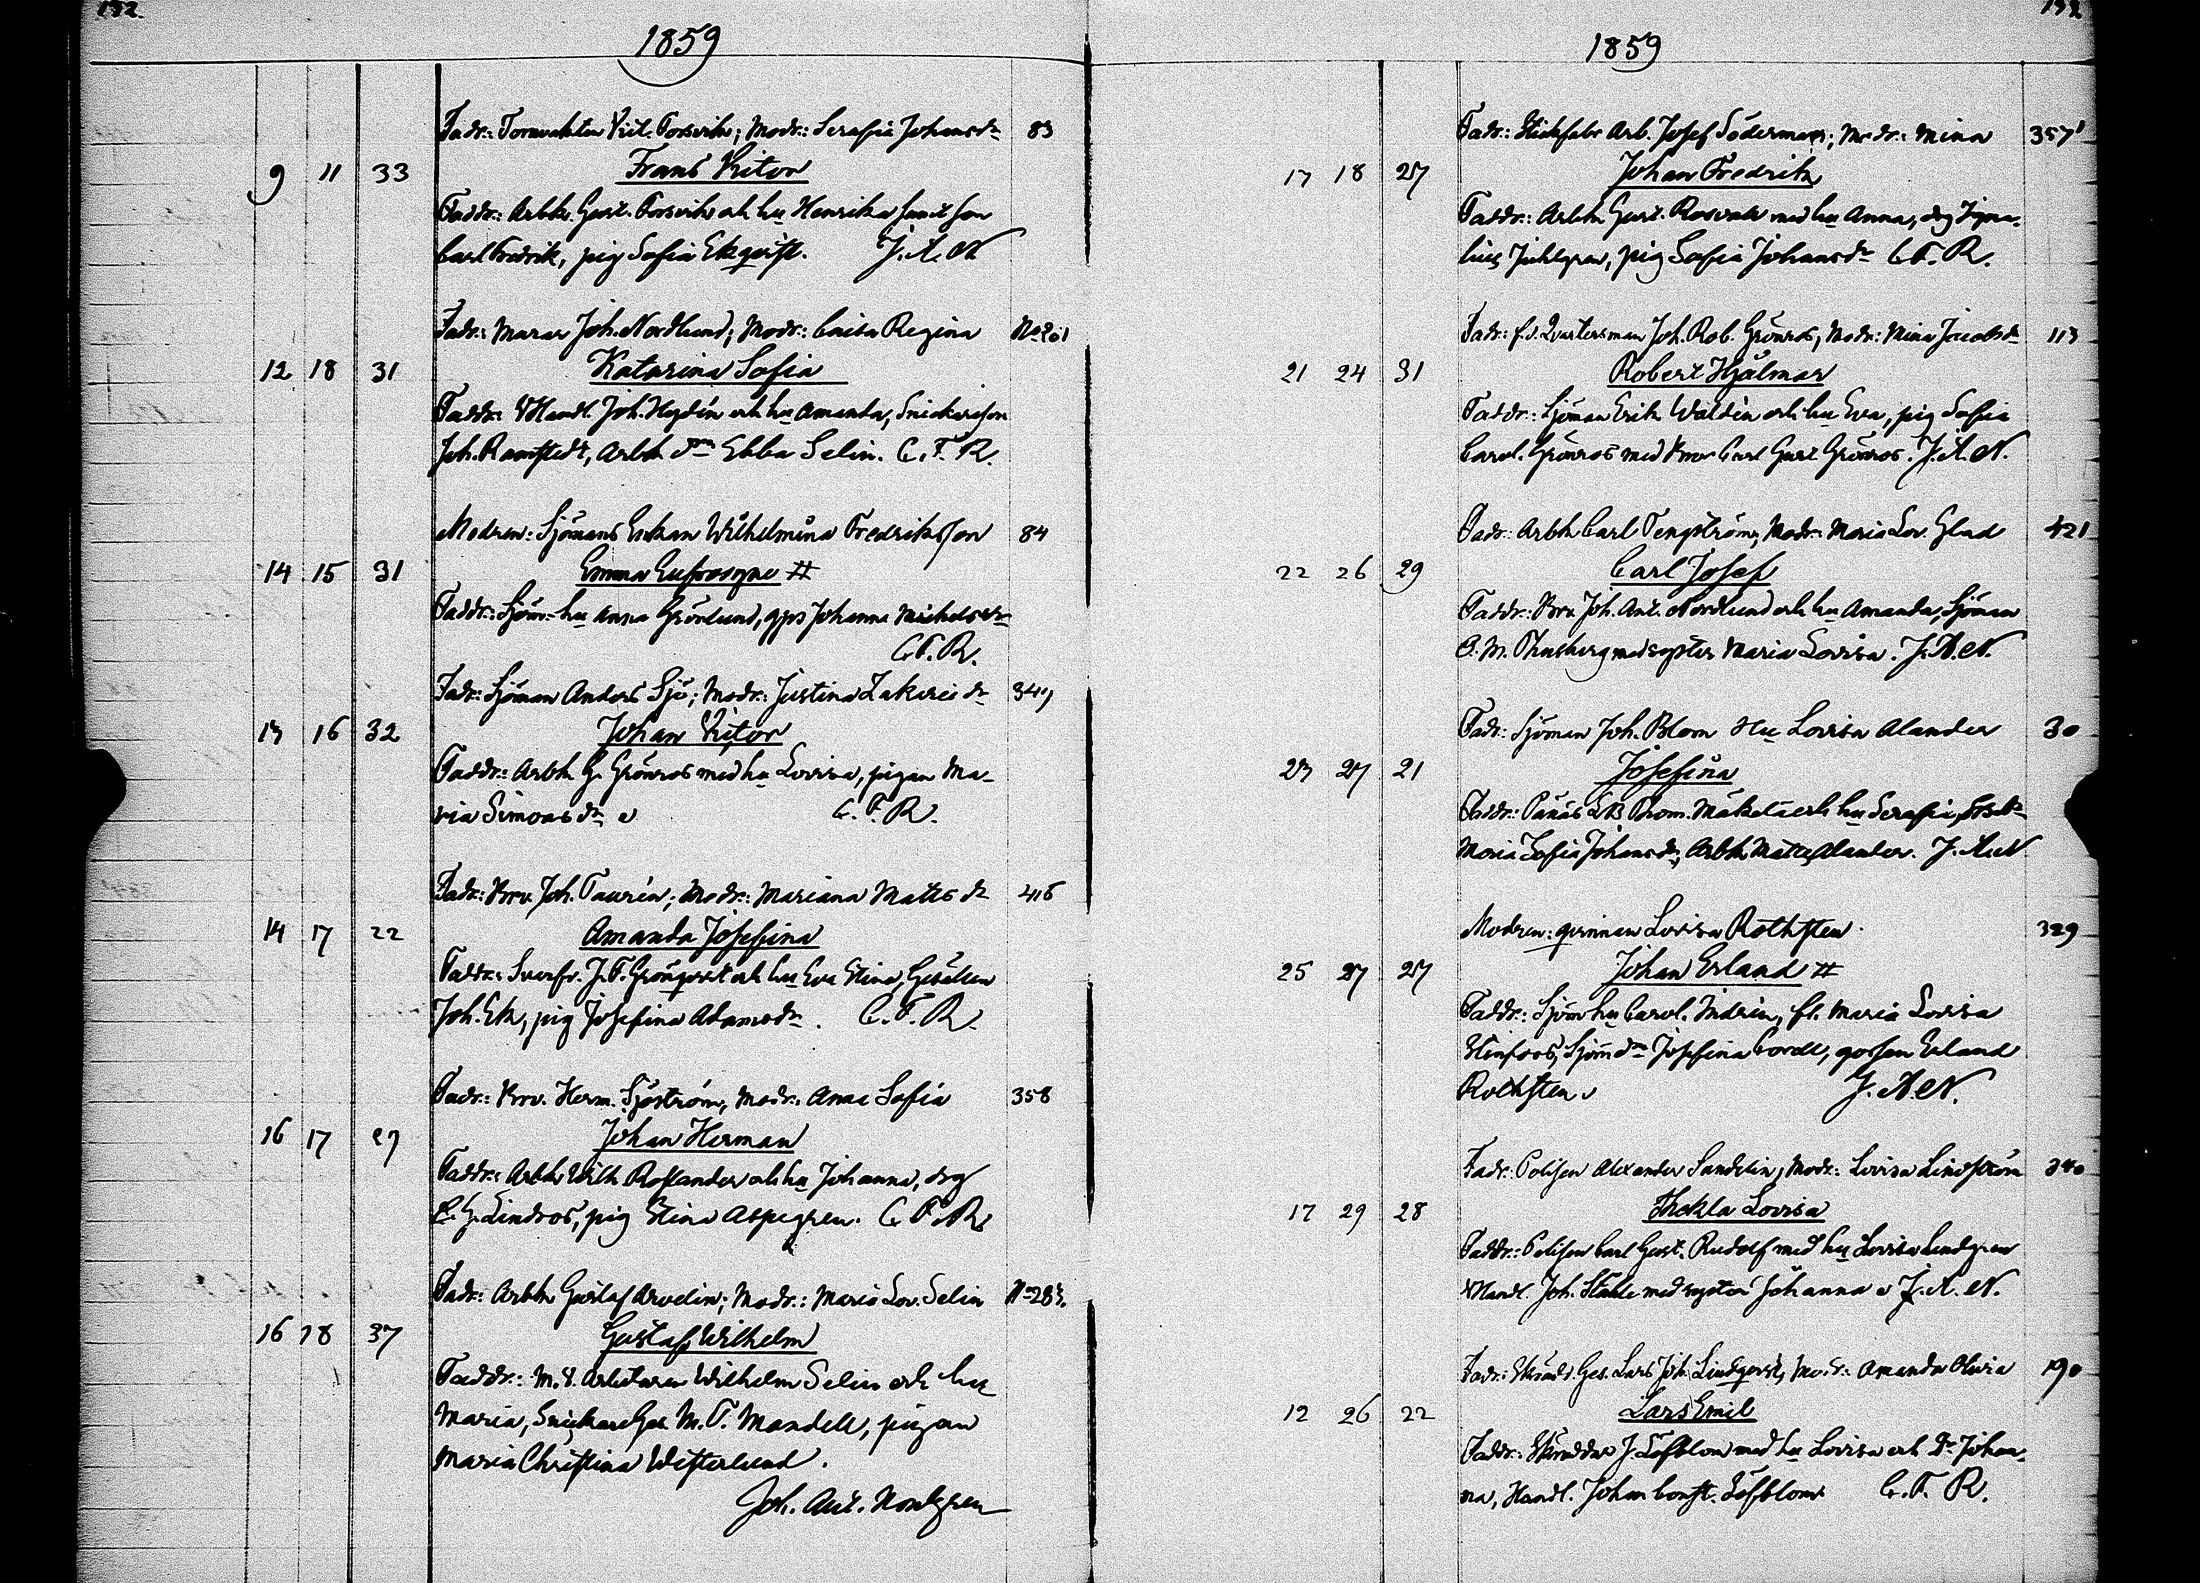 132.
1859
Fadr: Tornvakten Vict. Forsvik; Modr: Serafia Johansdr 83
9 11 33 Frans Victor
Faddr: Arbk. Gust. Forsvik och hu Henrika samt son
Carl Fredrik, pig Sofia Ekqvist. J. A. N
Fadr: Murar Joh. Nordlund; Modr: Caisa Regina No 201
12 18 31 Katarina Sofia
Faddr: VHandl. Joh. Hydén och hu Amanda, Snickareson
Joh. Ramstedt, Arbk dr Ebba Selin. C. F. R.
Modren: Sjömans Enkan Wilhelmina Fredriksson 84
14 15 31 Emma Eufrosyne #
Faddr: Sjöm. hu Anna Grönlund, gps Johanna Michelsdr
C. F. R.
Fadr: Sjöman Anders Sjö; Modr: Justina Zakrisdr 349
13 16 32 Johan Victor
Faddr: Arbk G. Grönros med hu Lovisa, pigan Ma-
ria Simonsdr C. F. R.
Fadr: Joh. Taurén; Modr: Mariana Mattsdr 416
14 17 22 Amanda Josefina
Faddr: J. F. Grönqvist och hu Eva Stina, Gesällen
Joh. Ek, pig Josefina Adamsdr. C. F. R.
Fadr: Herm. Sjöström; Modr: Anna Sofia 358
16 17 27 Johan Herman
Faddr: Arbk Wilh Roslander och hu Johanna, drg
C. G. Lindros, pig Stina Aspegren. C. F. R.
Fadr: Arbk Gustaf Arvelin; Modr: Maria Lov. Selin No 283.
16 18 37 Gustaf Wilhelm
Faddr: Arbetaren Wilhelm Selin och hu
Maria, Snickare Ges. M. F. Mandell, pigan
Maria Christina Westerlund.
Joh. Ant. Nordgren
132
1859
Fadr: Arb. Josef Söderman; Modr: Mina 357
17 18 27 Johan Fredrik
Faddr: Arbk Gust. Rosvall med hu Anna, drg
pig Sofia Johansdr C. F. R.
Fadr: f.d. Qvartersman Joh. Rob. Grönros; Modr: Mina Jacobsdr 113
21 24 31 Robert Hjalmar
Faddr: Sjöman Erik Waldén och hu Eva, pig Sofia
Carol. Grönros med Carl Gust Grönros. J. A. N.
Fadr: Arbk Carl Tengström; Modr: Maria Lov. Glad 421
22 26 29 Carl Josef
Faddr: Joh. Ant. Nordlund och hu Amanda, Sjöman
med syster Maria Lovisa. J. A. N.
Fadr: Sjöman Joh. Blom Hu Lovisa Alander 30
23 27 21 Josefina
Faddr: Mäkelä och hu Serafia,
Maria Sofia Johansdr, Arbk Matts Alander. J. A. N
Modren: qvinnan Lovisa Rothsten. 329
25 27 27 Johan Erland #
Faddr: Sjöm hu Carol. Indrén, fl. Maria Lovisa
Winfros, Sjöm dr Josefina Cordl, gossen Erland
Rothsten J. A. N.
Fadr: Polisen Alexander Sandelin; Modr: Lovisa Lindström 340
17 29 28 Thekla Lovisa
Faddr: Polisen Carl Gust. Rudolf med hu Lovisa Lindgren
VHandl. Joh. Ståhle med syster Johanna J. A. N.
Fadr: Skrädd. Ges. Lars Joh. Lindqvist; Modr: Amanda Olivia 190
12 26 22 Lars Emil
Faddr: Skräddar J. Löfblom med hu Lovisa och Dr Johan-
na, Handl. Johan Const. Löfblom C. F. R.